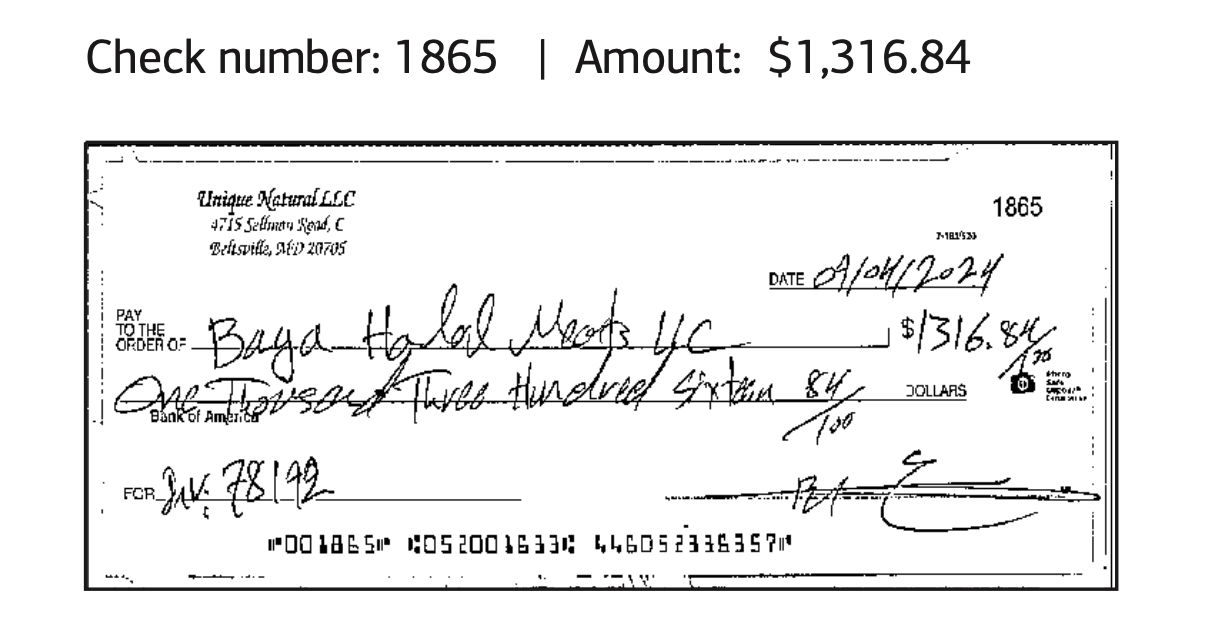 Check number: 1865 | Amount: $1,316.84
Unique Natural LLC
4715 Sellman Road, C
Beltsville, MD 20705
1865
DATE 09/04/2024
PAY TO THE ORDER OF Baya Halal Meats LLC $1316.84/100
One Thousand Three Hundred Sixteen 84/100 DOLLARS
Bank of America
FOR Inv: 78192
⑈001865⑈ ⑆052001633⑆ 446052336357⑈